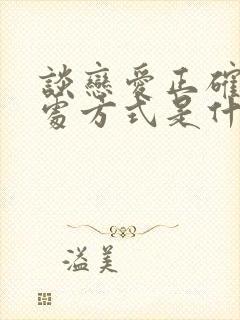 談戀愛正確
處方式是什
溢美